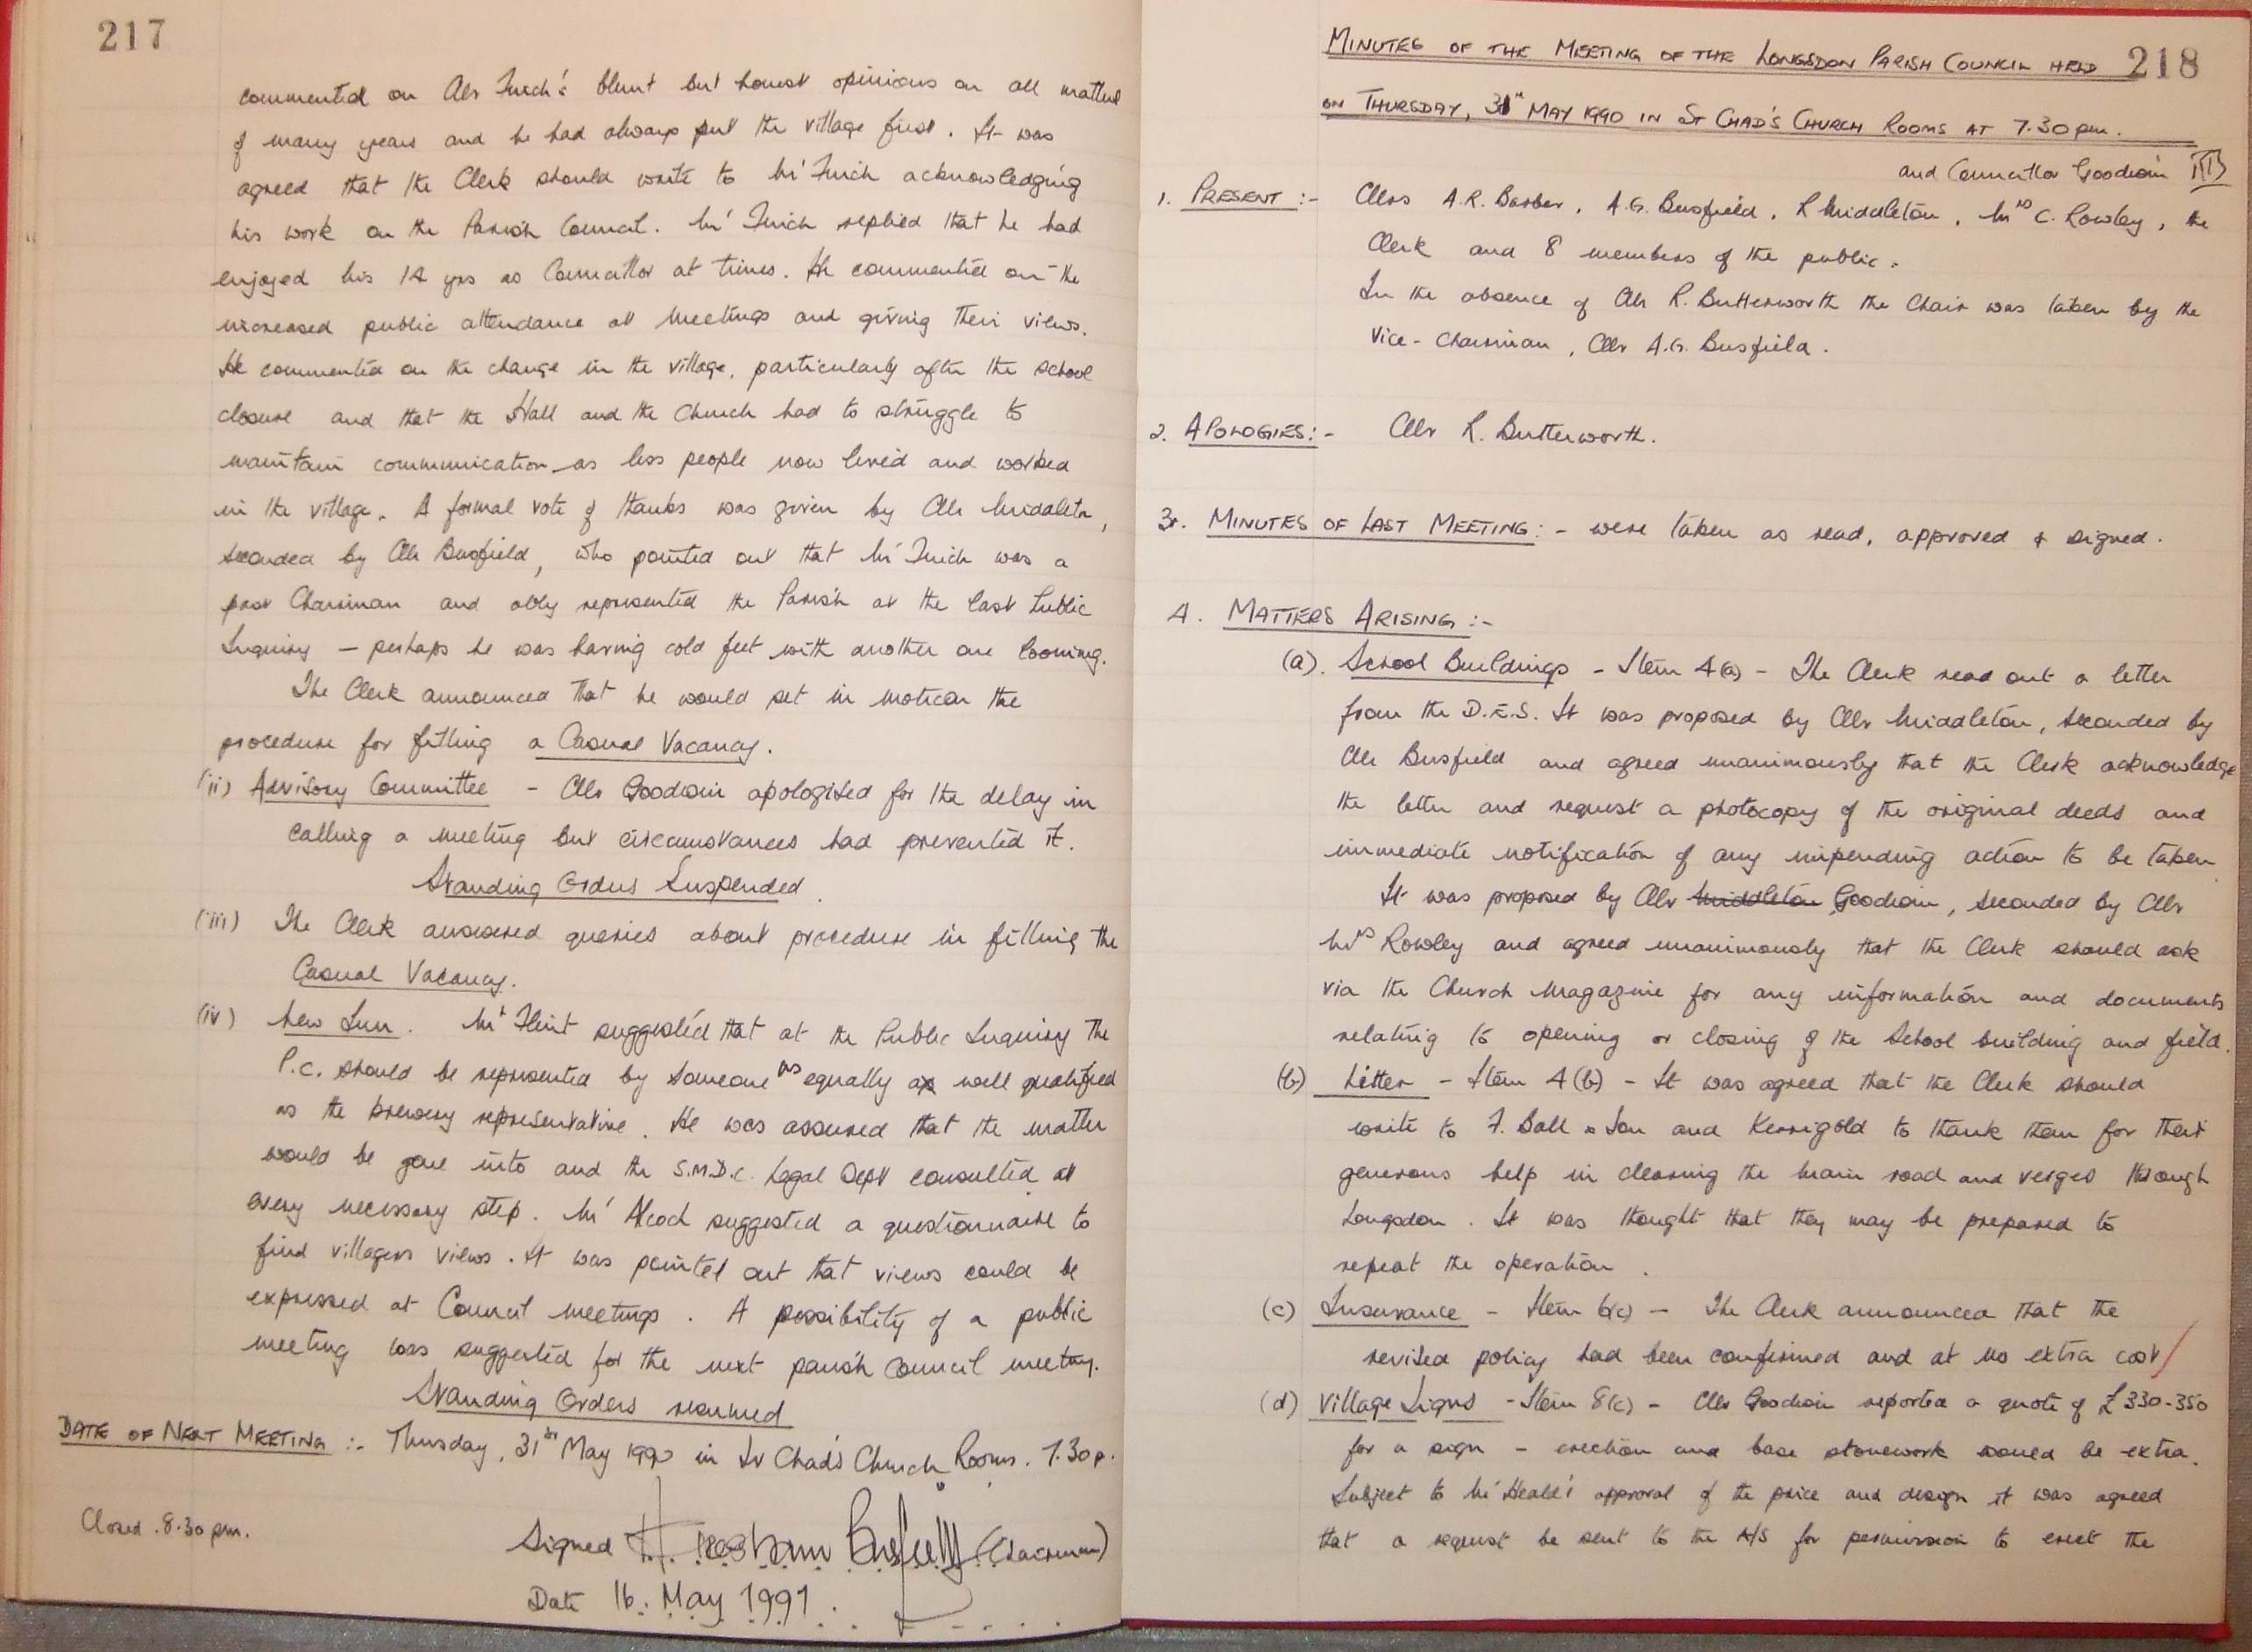 217
commented on Cllr Finch's blunt but honest opinions on all matters
of many years and he had always put the village first. It was
agreed that the Clerk should write to Mr Finch acknowledging
his work on the Parish Council. Mr Finch replied that he had
enjoyed his 14 yrs as Councillor at times. He commented on the
increased public attendance at Meetings and giving their views.
He commented on the change in the village, particularly after the school
closure and that the Hall and the Church had to struggle to
maintain communication as less people now lived and worked
in the village. A formal vote of thanks was given by Cllr Middleton,
seconded by Cllr Busfield, who pointed out that Mr Finch was a
past Chairman and ably represented the Parish at the last Public
Inquiry – perhaps he was having cold feet with another one looming.
The Clerk announced that he would set in motion the
procedure for filling a Casual Vacancy.
(ii) Advisory Committee - Cllr Goodwin apologised for the delay in
calling a meeting but circumstances had prevented it.
Standing Orders Suspended.
(iii) The Clerk answered queries about procedure in filling the
Casual Vacancy.
(iv) New Inn. Mr Flint suggested that at the Public Inquiry the
P.C. should be represented by someone as equally as well qualified
as the brewery representative. He was assured that the matter
would be gone into and the S.M.D.C. Legal Dept consulted at
every necessary step. Mr Alcock suggested a questionnaire to
find villagers views. It was pointed out that views could be
expressed at Council meetings. A possibility of a public
meeting was suggested for the next parish council meeting.
Standing Orders resumed
DATE OF NEXT MEETING :- Thursday, 31st May 1990 in St Chad's Church Rooms. 7.30 p.
Closed. 8.30 pm.
Signed Busfield (Chairman)
Date 16. May 1991.
MINUTES OF THE MEETING OF THE LONGSDON PARISH COUNCIL HELD 218
ON THURSDAY, 31st MAY 1990 IN ST CHAD'S CHURCH ROOMS AT 7.30 pm.
and Councillor Goodwin
1. PRESENT :- Cllrs A.R. Barber, A.G. Busfield, R Middleton, Mrs C. Rowley, the
Clerk and 8 members of the public.
In the absence of Cllr R. Butterworth the Chair was taken by the
Vice-Chairman, Cllr A.G. Busfield.
2. APOLOGIES :- Cllr R. Butterworth.
3. MINUTES OF LAST MEETING :- were taken as read, approved & signed.
4. MATTERS ARISING :-
(a). School Buildings - Item 4(a) - The Clerk read out a letter
from the D.E.S. It was proposed by Cllr Middleton, seconded by
Cllr Busfield and agreed unanimously that the Clerk acknowledge
the letter and request a photocopy of the original deeds and
immediate notification of any impending action to be taken.
It was proposed by Cllr Middleton Goodwin, seconded by Cllr
Mrs Rowley and agreed unanimously that the Clerk should ask
via the Church Magazine for any information and documents
relating to opening or closing of the School building and field.
(b) Litter - Item 4(b) - It was agreed that the Clerk should
write to F. Ball & Son and Kerrigold to thank them for their
generous help in clearing the main road and verges through
Longsdon. It was thought that they may be prepared to
repeat the operation.
(c) Insurance - Item 6(c) - The Clerk announced that the
revised policy had been confirmed and at no extra cost
(d) Village Signs - Item 8(c) - Cllr Goodwin reported a quote of £330-350
for a sign - erection and base stonework would be extra.
Subject to Mr Heald's approval of the price and design it was agreed
that a request be sent to the A/S for permission to erect the